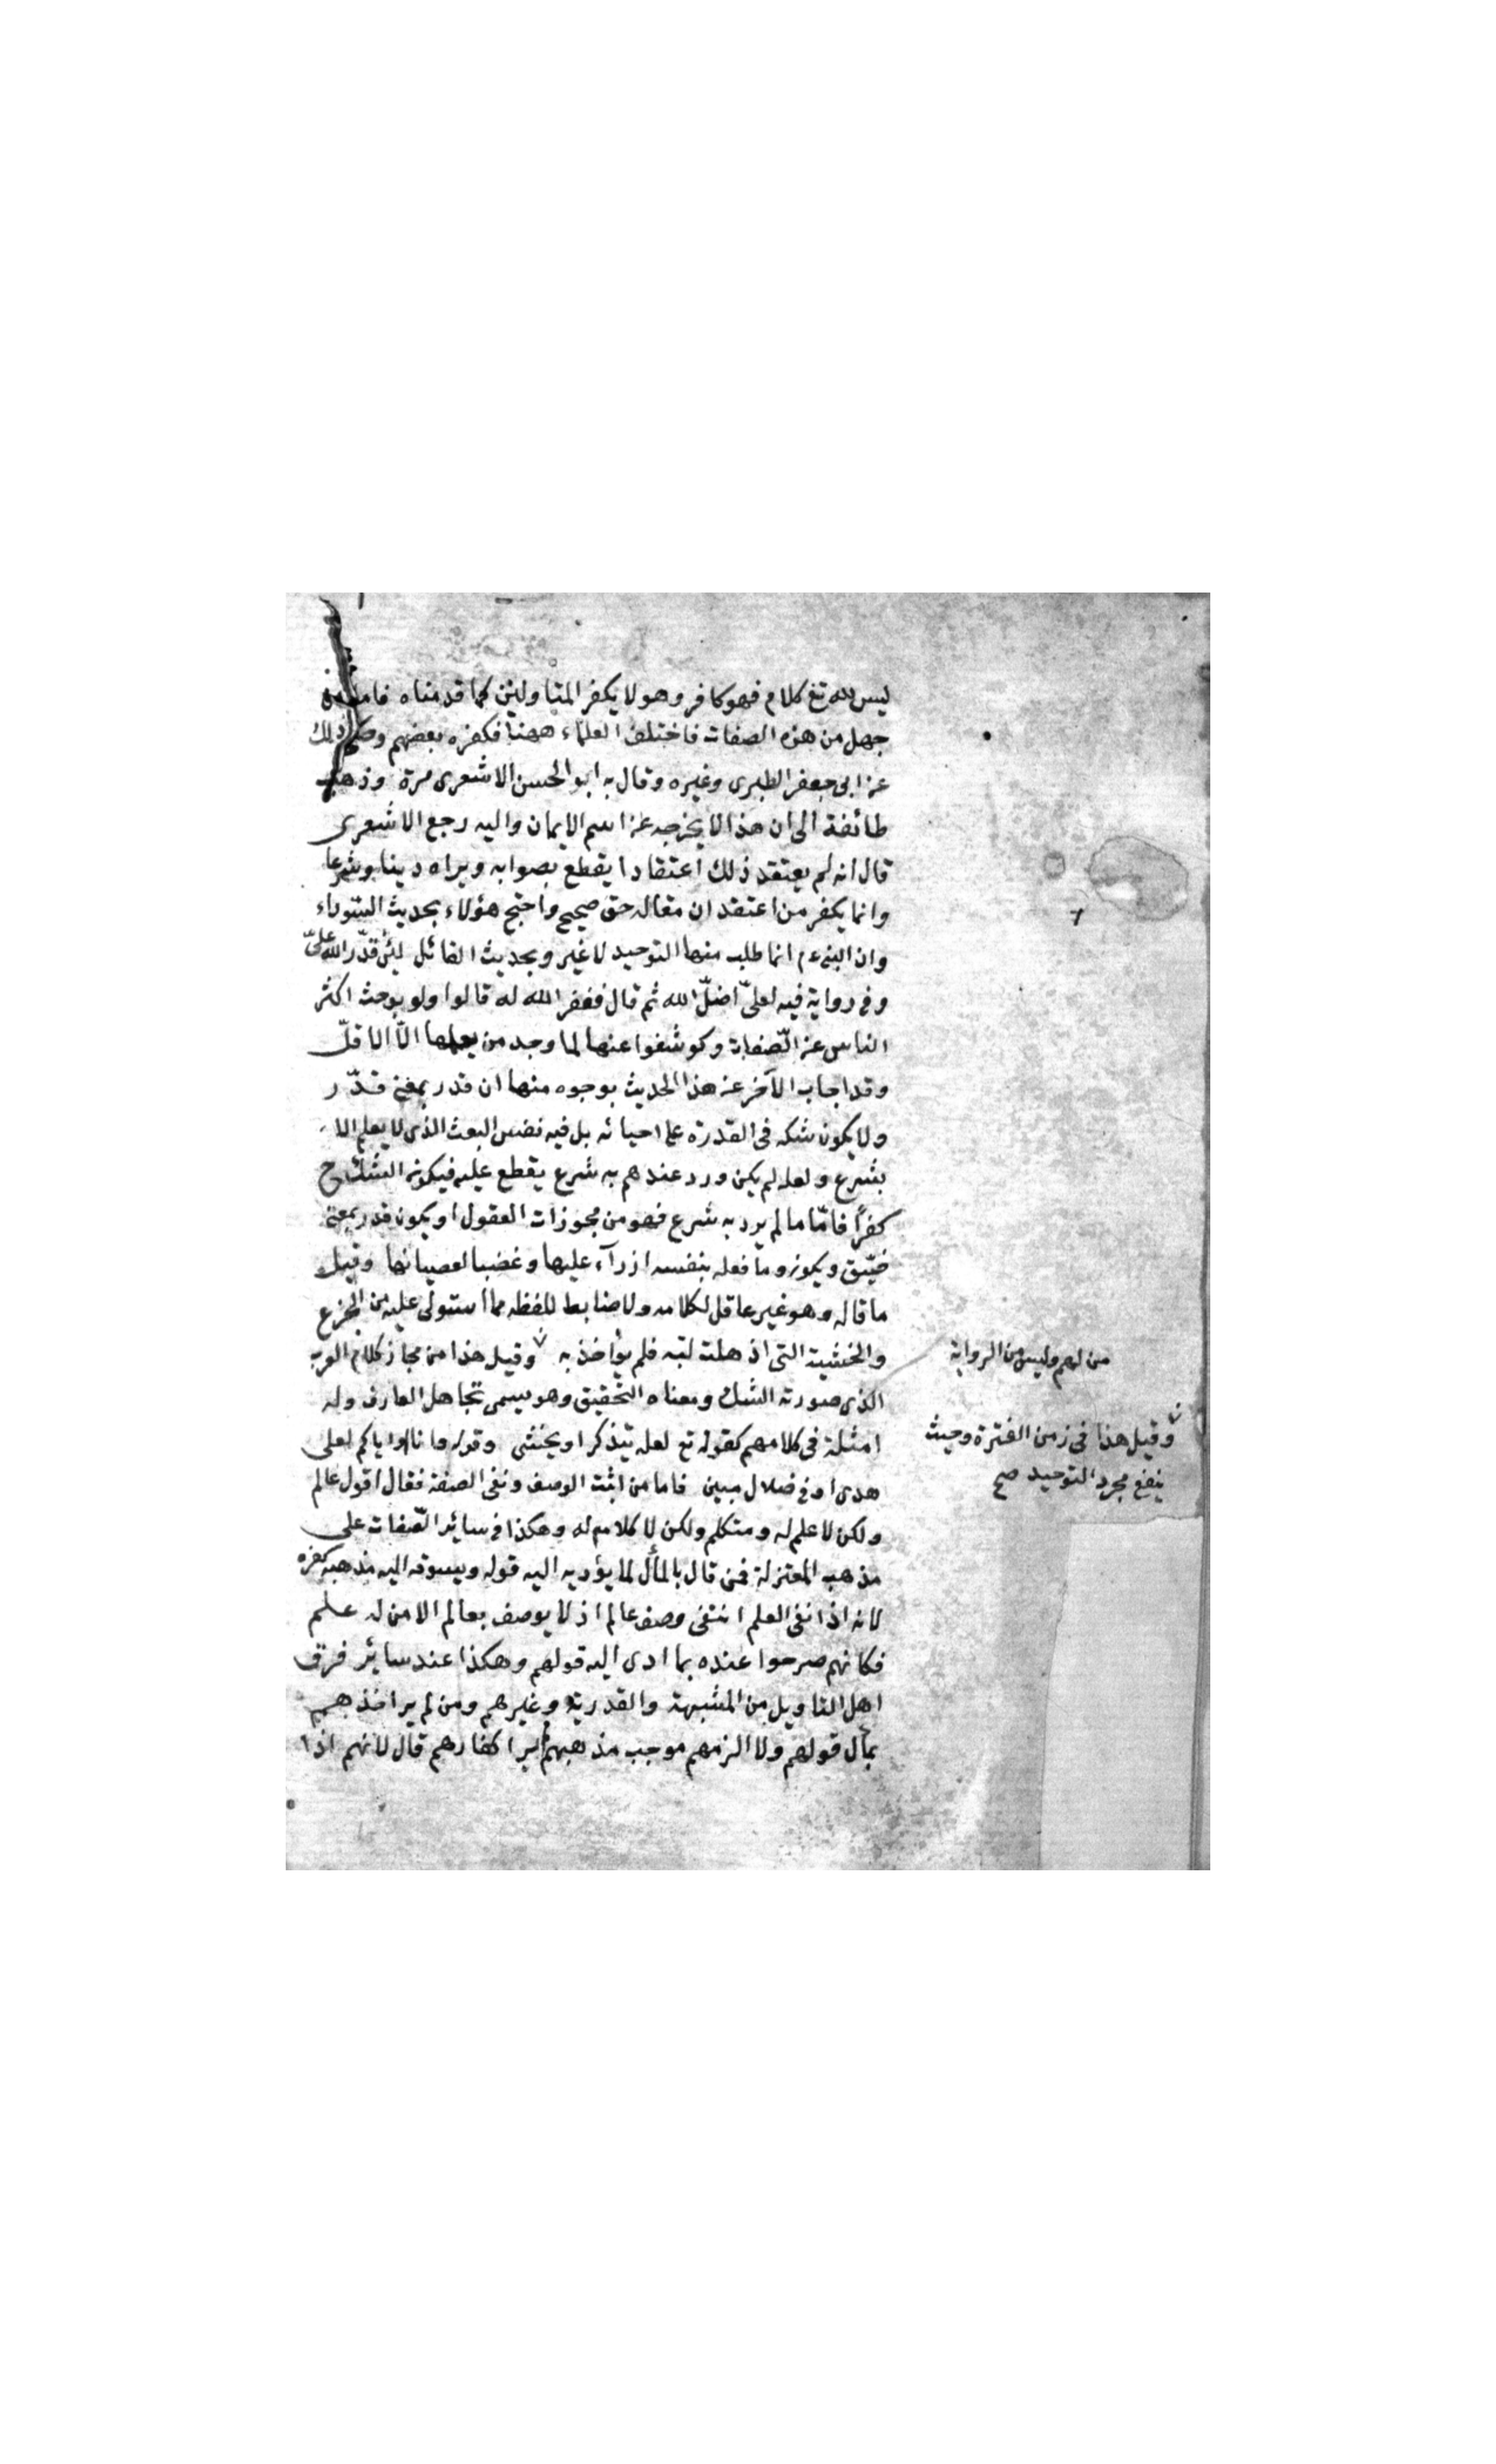 ليس لله تع كلام فهو كافر وهو لا يكفر المتاولين كما قدمناه فاما من
جهل من هذه الصفات فاختلف العلماء ههنا فكفره بعضهم وحكى ذلك
عن ابى جعفر الطبرى وغيره وقال به ابو الحسن الاشعرى مرة وذهبت
طائفة الى ان هذا لا يخرجه عن اسم الايمان واليه رجع الاشعرى
قال لانه لم يعتقد ذلك اعتقادا يقطع بصوابه ويراه دينا وشرعا
وانما يكفر من اعتقد ان مقاله حق صحيح واحتج هؤلاء بحديث السوداء
وان النبى عم انما طلب منها التوحيد لا غير وبحديث القائل لئن قدّر الله علىّ
وفى رواية فيه لعلّى اضلّ الله ثم قال فغفر الله له قالوا ولو بوحث اكثر
الناس عن الصّفات وكوشفوا عنها لما وجد من يعلمها الّا الاقلّ
وقد اجاب الآخر عن هذا الحديث بوجوه منها ان قدر بمعنى قدّر
ولا يكون شكه فى القدرة على احيائه بل فيه نفس البعث الذى لا يعلم الا
بشرع ولعله لم يكن ورد عندهم به شرع يقطع عليه فيكون الشك ح
كفرًا فامّا ما لم يرد به شرع فهو من مجوزات العقول او يكون قدر بمعنى
ضيّق ويكون وما فعله بنفسه ازرآء عليها وغضبا لعصيانها وقيل
ما قاله وهو غير عاقل لكلامه ولا ضابط للفظه مما استولى عليه من الجزع
والخشية التى اذهلت لبه فلم يؤاخذ به وقيل هذا من مجاز كلام العرب
الذى صورته الشك ومعناه التحقيق وهو يسمى تجاهل العارف وله
امثلة فى كلامهم كقوله تع لعله يتذكر او يخشى وقوله وانا او اياكم لعلى
هدى او فى ضلال مبين فاما من اثبت الوصف ونفى الصفة فقال اقول عالم
ولكن لا علم له ومتكلم ولكن لا كلام له وهكذا فى سائر الصّفات على
مذهب المعتزلة فمن قال بالمأل لما يؤديه اليه قوله ويسوقه اليه مذهبه كفره
لانه اذا نفى العلم انتفى وصف عالم اذ لا يوصف بعالم الا من له علم
فكانهم صرحوا عنده بما ادى اليه قولهم وهكذا عند سائر فرق
اهل التاويل من المشبهة والقدرية وغيرهم ومن لم ير اخذهم
بمآل قولهم ولا الزمهم موجب مذهبهم لم ير اكفارهم قال لانهم اذا
من لهم وليس من الرواية
وقيل هذا فى زمن الفترة وحيث
ينفع مجرد التوحيد صح